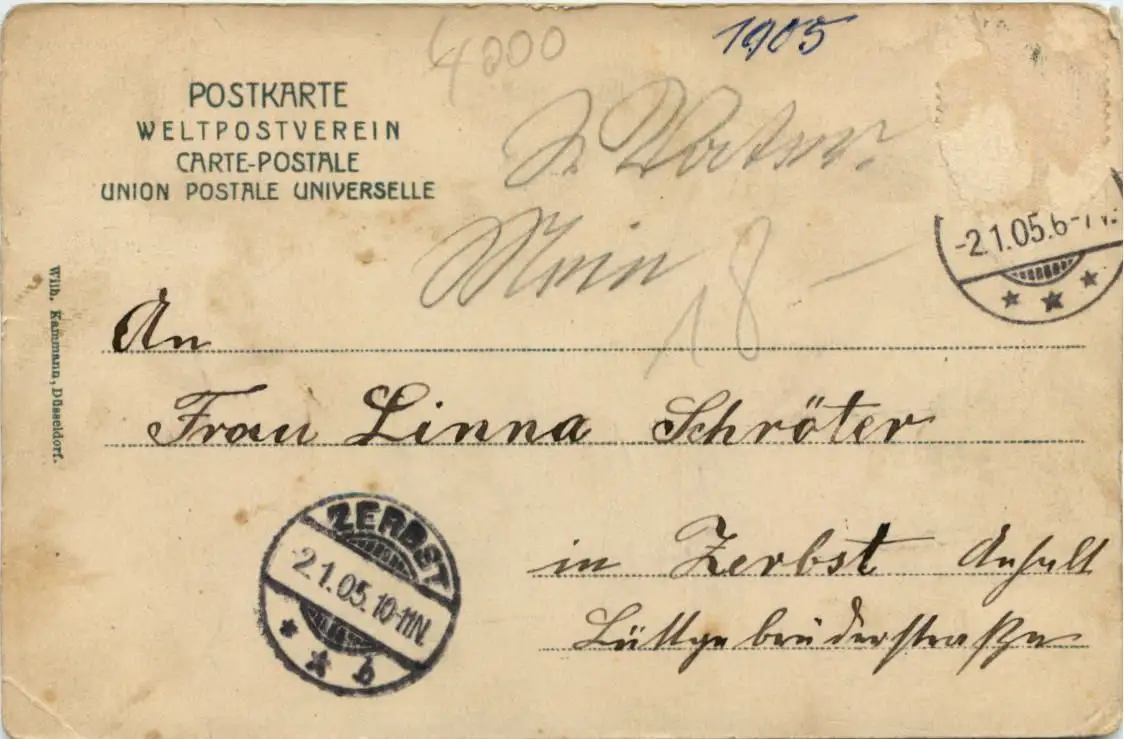 4000
1905
POSTKARTE
WELTPOSTVEREIN
CARTE-POSTALE
UNION POSTALE UNIVERSELLE
Main 18.–
-2.1.05.6-7N.
Wilh. Kammann, Düsseldorf.
An
Frau Linna Schröter
in Zerbst Anhalt
Lüttgebrüderstraße
ZERBST
-2.1.05.10-11N.
* * b